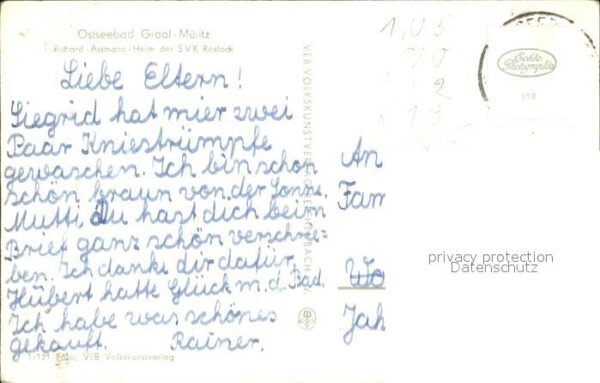 Ostseebad Graal-Müritz
Richard-Assmann-Heim der SVK Rostock
Liebe Eltern!
Siegrid hat mier zwei
Paar Kniestrümpfe
gewaschen. Ich bin schon
schön braun von der Sonne.
Mutti, Du hast dich beim
Brief ganz schön verschrie=
ben. Ich danke dir dafür.
Hübert hatte Glück m.d. Bad.
Ich habe was schönes
gekauft. Rainer.
Foto: VEB Volkskunstverlag
VEB VOLKSKUNSTVERLAG
1,05
Echte
Photographie
618
An
Fam
privacy protection
Datenschutz
Wo
Jah